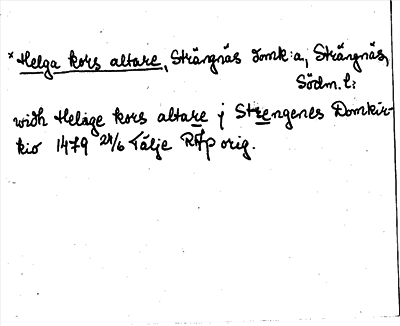 *Helga kors altare, Strängnäs domk:a, Strängnäs,
Södm.l:
widh Heläge kors altare j Strengenes Domkir-
kio 1479 24/6 Tälje RAp orig.